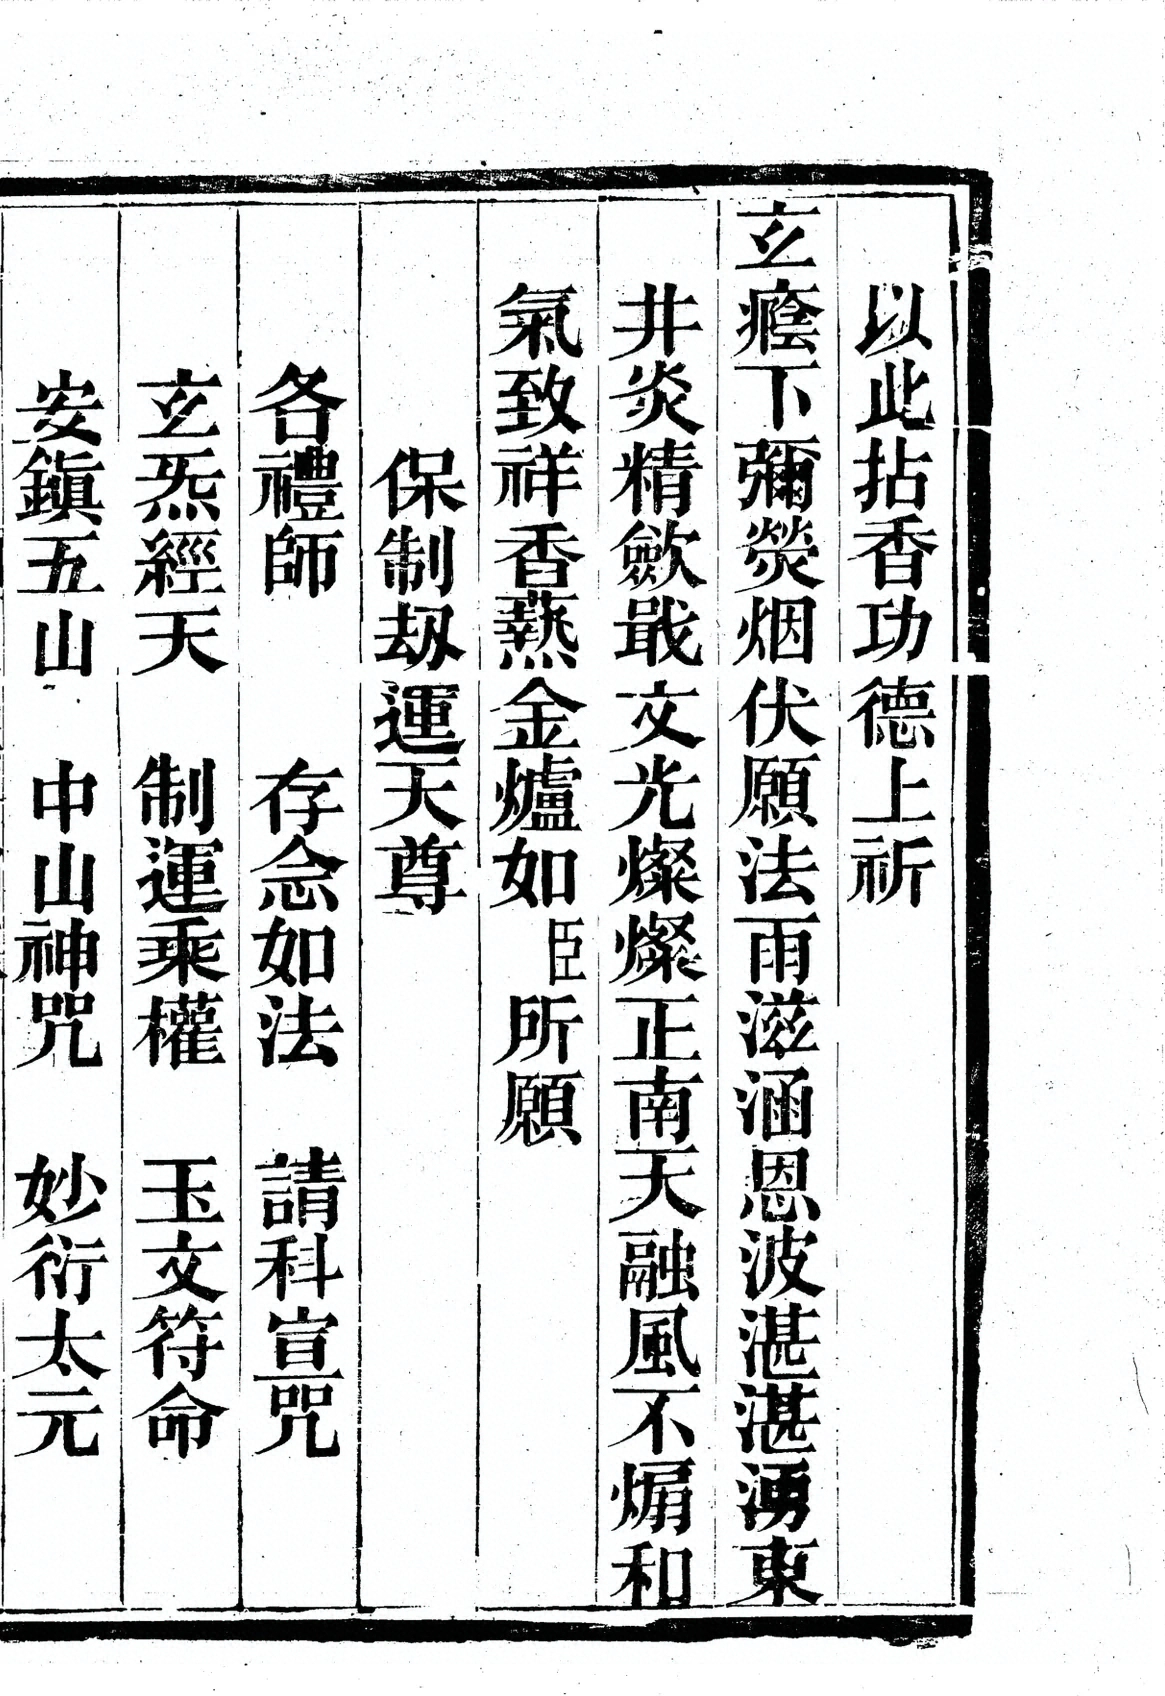 以此拈香功德上祈
玄癊下彌熒烟伏願法雨滋涵恩波湛湛湧東
井炎精斂戢文光燦燦正南天融風不煽和
氣致祥香爇金爐如臣所願
保制劫運天尊
各禮師　存念如法　請科宣咒
玄炁經天　制運乘權　玉文符命
安鎮五山　中山神咒　妙衍太元